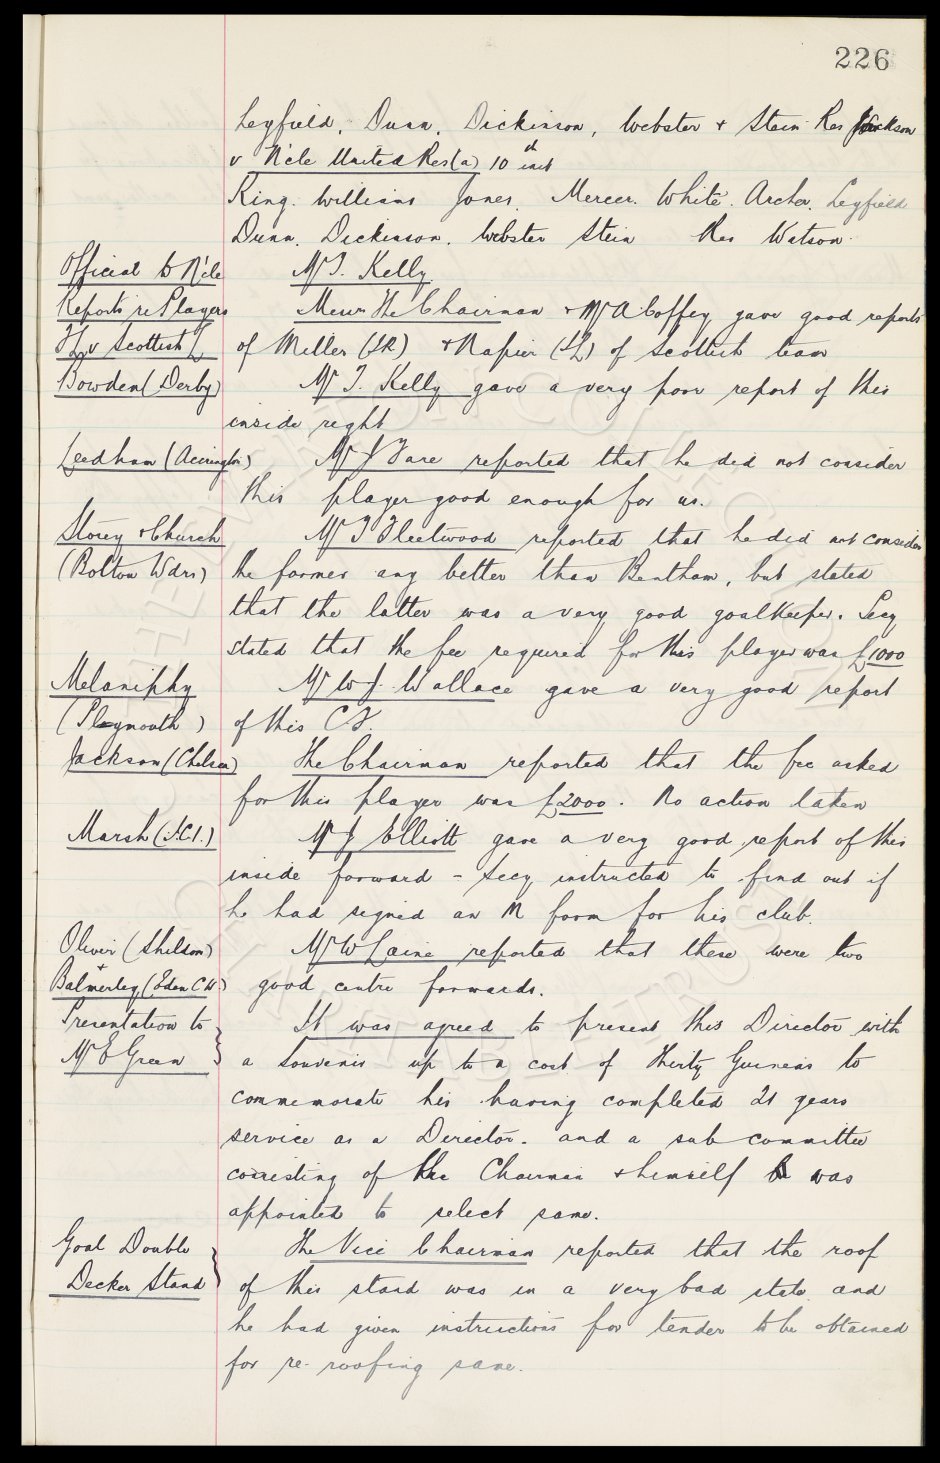 226
Leyfield, Dunn, Dickinson, Webster & Stein Res Jackson
v N'cle United Res (a) 10th inst
King. Williams Jones. Mercer. White. Archer. Leyfield
Dunn. Dickinson. Webster Stein Res Watson.
Official to N'cle Mr T. Kelly.
Reports re Players Messrs The Chairman & Mr A Coffey gave good reports
FL v Scottish L of Miller (IR) & Napier (IL) of Scottish team
Bowden (Derby) Mr T. Kelly gave a very poor report of this
inside right
Leedham (Accrington) Mr J Fare reported that he did not consider
this player good enough for us.
Storey & Church Mr T Fleetwood reported that he did not consider
(Bolton Wdrs) the former any better than Bentham, but stated
that the latter was a very good goalkeeper. Secy
stated that the fee required for this player was £1000
Melaniphy Mr W J. Wallace gave a very good report
(Plymouth) of this C F.
Jackson (Chelsea) The Chairman reported that the fee asked
for this player was £2000. No action taken
Marsh Mr J Elliott gave a very good report of this
inside forward - Secy instructed to find out if
he had signed an M form for his club.
Oliver (Shildon) Mr W Laine reported that these were two
+
Balmerley (Eden C W) good centre forwards.
Presentation to It was agreed to present this Director with
Mr E Green a souvenir up to a cost of Thirty Guineas to
commemorate his having completed 21 years
service as a Director. and a sub committee
consisting of the Chairman & himself was
appointed to select same.
Goal Double The Vice Chairman reported that the roof
Decker Stand of this stand was in a very bad state and
he had given instructions for tender to be obtained
for re-roofing same.